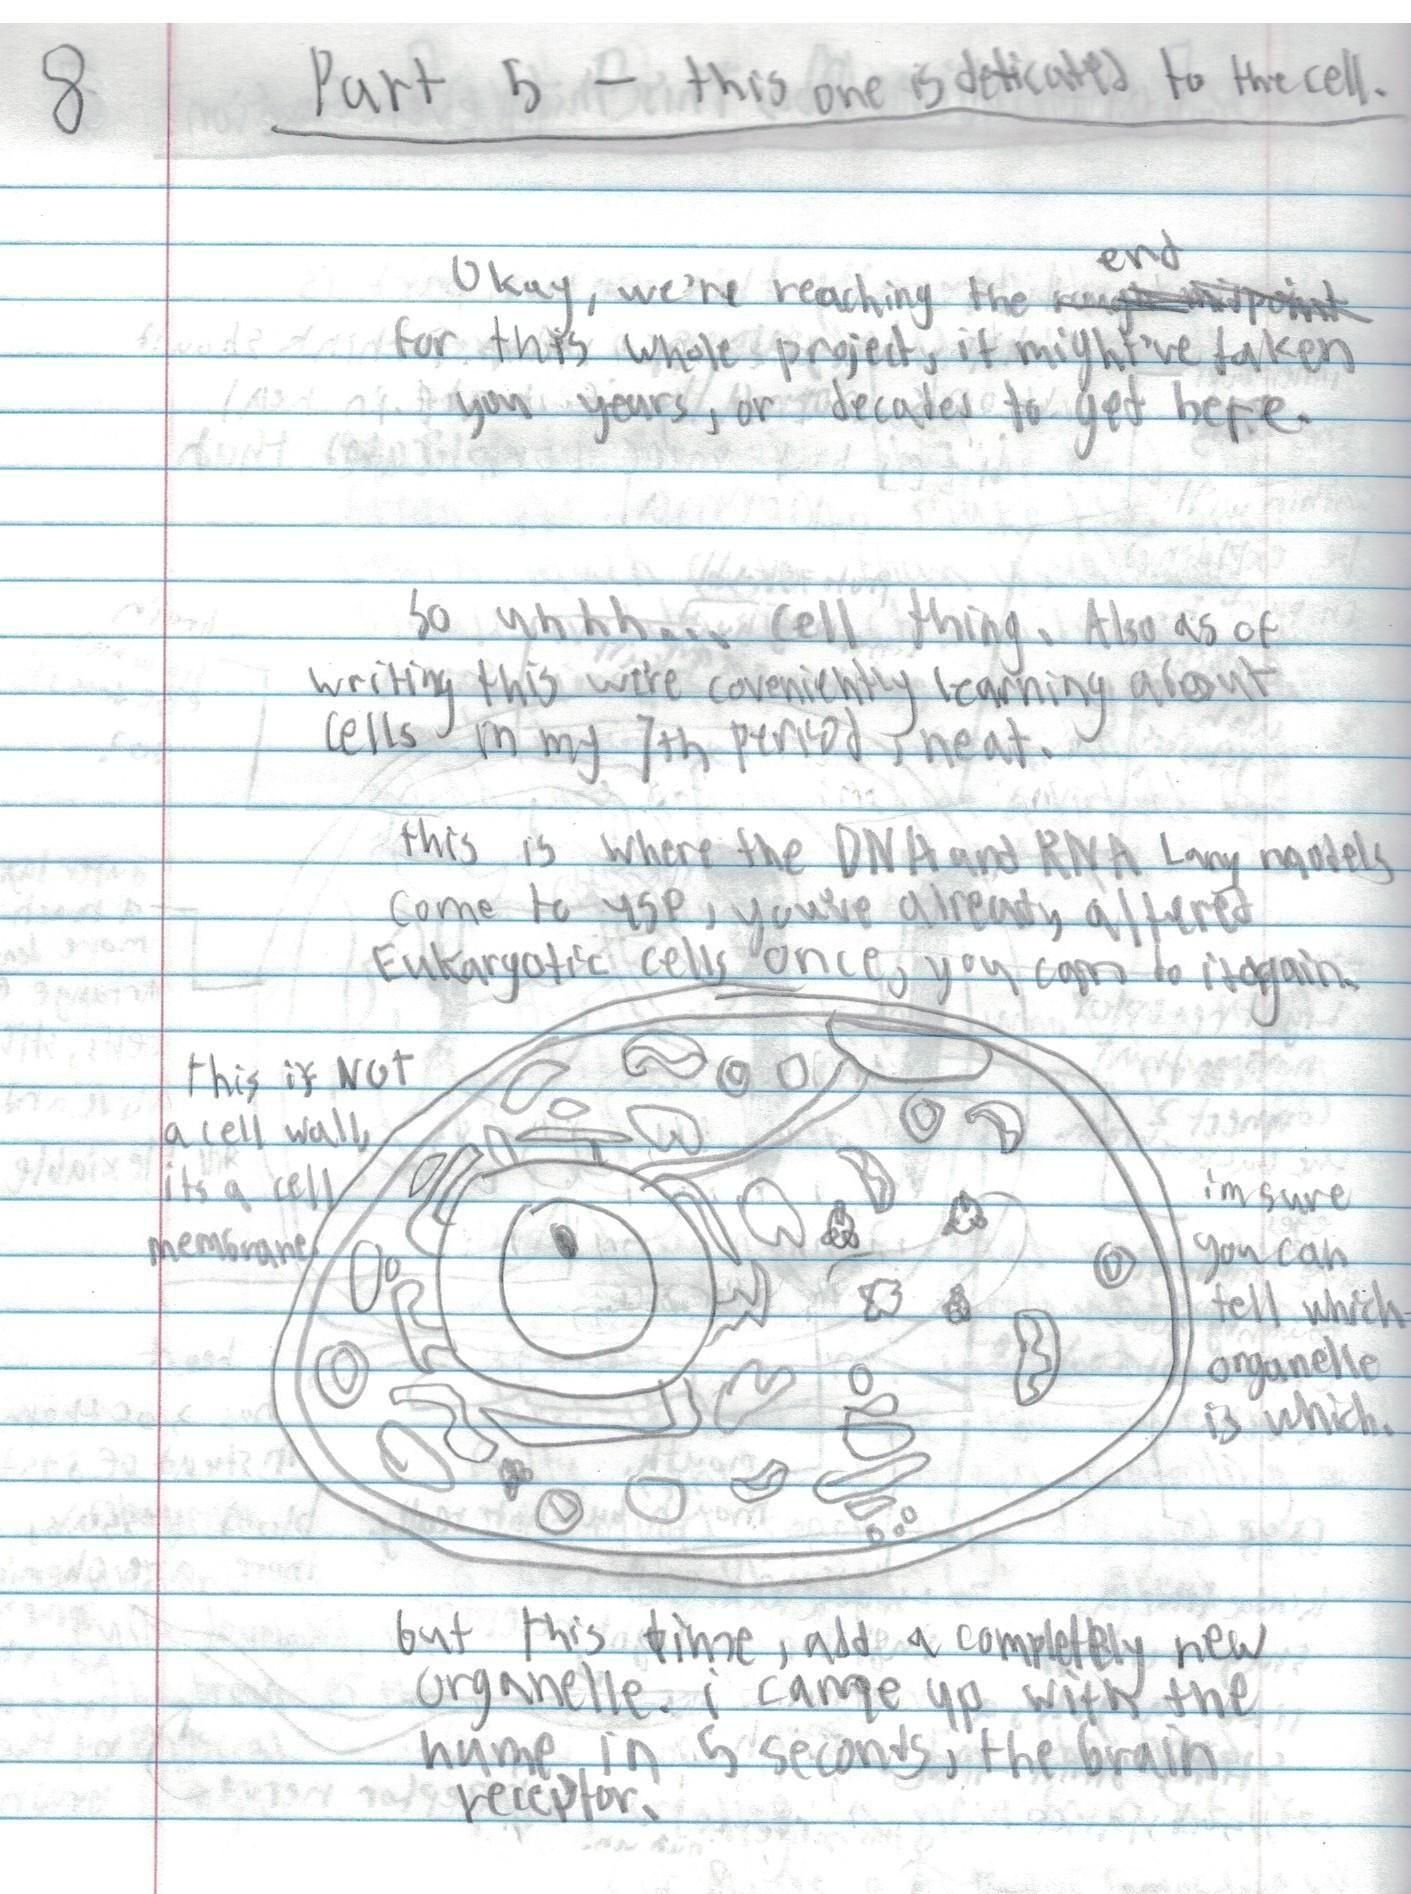 8
Part 5 - this one is deticated to the cell.
Okay, we're reaching the end
for this whole project, it might've taken
you years, or decades to get here.
So uhhhh... cell thing. Also as of
writing this we're coveniently learning about
cells in my 7th period, neat.
this is where the DNA and RNA Lany models
come to use, you've already altered
Eukaryotic cells once, you can do it again.
this is NOT
a cell wall,
its a cell
membrane
im sure
you can
tell which
organelle
is which.
but this time, add a completely new
organelle. i came up with the
name in 5 seconds, the brain
receptor.